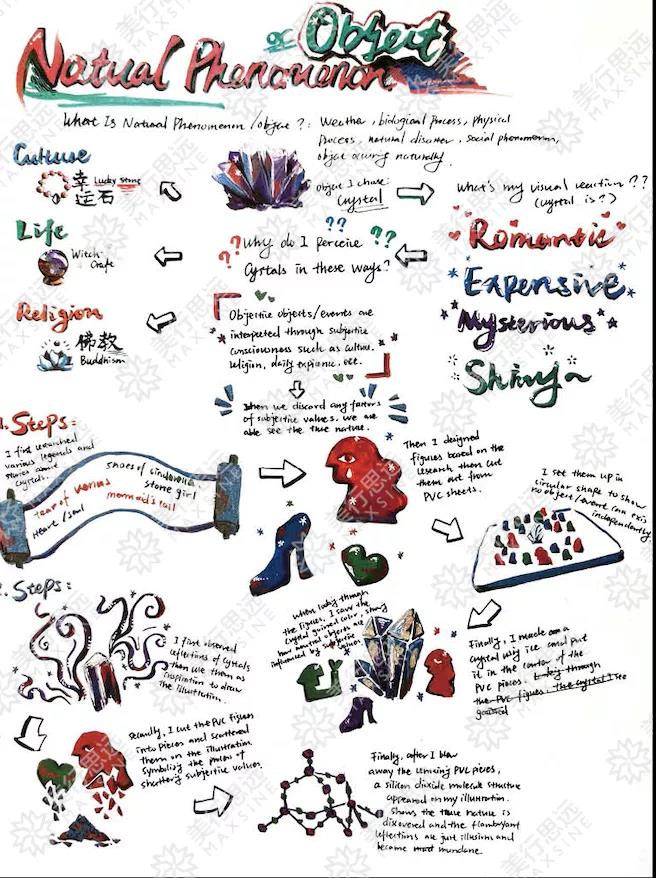 or Object
Natual Phenomenon
What Is Natural Phenomenon /object ?: Weather, biological process, physical
process, natural disaster, social phenomenon,
object occuring naturally.
Culture
幸运石
Lucky Stone
object I chose:
Crystal
What's my visual reaction ??
(crystal is?)
Life
Witch
Craft
?? Why do I perceive ??
Crystals in these ways?
??
Romantic
Expensive
Mysterious
Shiny
Religion
佛教
Buddhism
Objective objects/events are
interpreted through subjective
consciousness such as culture,
religion, daily expriance, etc.
When we discard any factors
of subjective values, we are
able see the true nature.
1. Steps:
I first researched
various legends and
stories about
crystals.
shoes of cinderella
stone girl
tear of Venus
mermaid's tail
Heart / soul
Then I designed
figures based on the
research then cut
them out from
PVC sheets.
I set them up in
circular shape to show
no object/event can exis
independently.
2. Steps:
I first observed
reflections of crystals
then use them as
inspiration to draw
the illustration.
When looking through
the figures, I saw the
crystal gained color, showing
how natural objects are
influenced by subjective
values.
Finally, I made an
crystal using ice and put
it in the center of the
PVC pieces.
Secondly, I cut the PVC figures
into pieces and scattered
them on the illustration
symbolizing the process of
shattering subjective values.
Finally, after I blow
away the remaining PVC pieces,
a silicon dioxide molecule structure
appeared on my illustration.
shows the true nature is
discovered and the flamboyant
reflections are just illusions and
become most mundane.
美行思远
MAXSINE